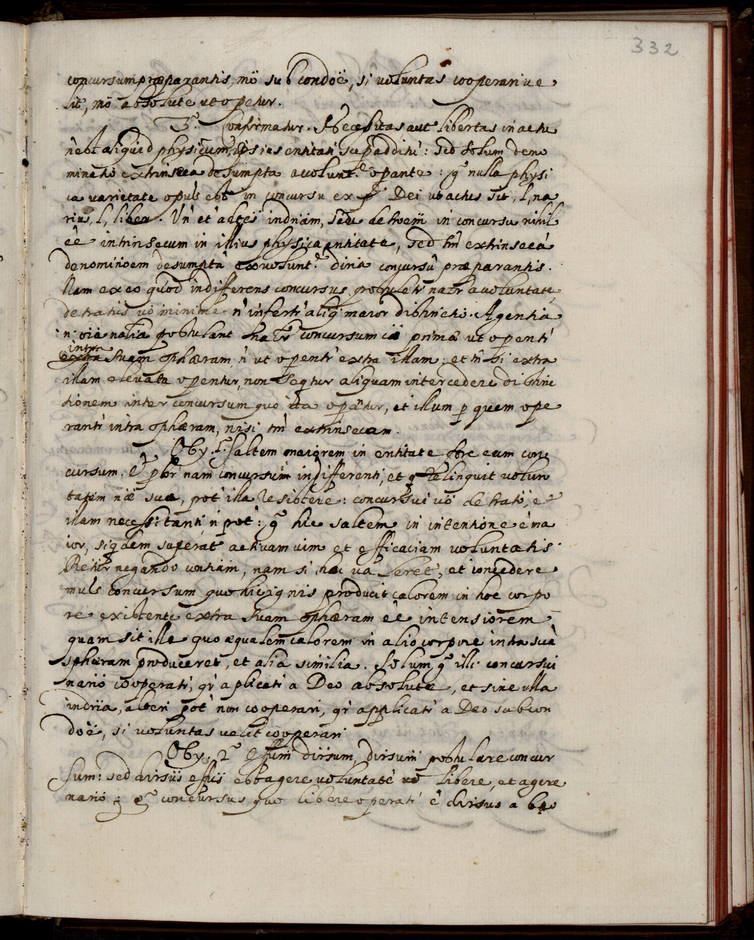 332
concursum præparantis, mō sub condoē, si voluntas cooperari ve
lit, mō absolute ut opetur.
3.ª Confirmatur. Necessitas aut libertas in actu
n̄ est aliquid physicum, ipsius entitati supadditū: sed solum deno
minatio extrinseca desumpta a volunt.e opante: gº nulla physi
ca varietate opus est in concursu ex pte Dei ut actus sit, l, na
rius, l, liber.
ēē intrinsecum in illius physica entitate, sed tm̄ extrinsecā
denominōem desumptā ex volunt.e dina concursū præparantis.
Nam ex eo quod indifferens concursus postulet natr a voluntate,
n̄ infert aliq maior distinctio. Agentia
n. oīa nalia postulant concursum cā primæ ut openti
intra
extra suam sphæram, n̄ ut openti extra illam; et tn̄ si extra
illam elevata openter, non seqtur aliquam intercedere distinc
tionem inter concursum quo ita opantur, et illum p quem ope
ranti intra sphæram, nisi tm̄ extrinsecam.
Oby. 1.º saltem maiorem in entitate fore eum con
cursum. Et pbr nam concursum indifferenti, et q relinquit volun
tatem nāe suæ, pot illa resistere: concursui vō detrato, et
illam necessitanti n̄ pot: gº hic saltem in intentione ē ma
ior, siqdem superat activam vim et efficaciam voluntatis.
Retur negando consām, nam si hæc va foret, et concedere
mus concursum quo hic ignis producit calorem in hoc corpo
re existente extra suam sphæram ēē intensiorem
quam sit ille quo æqualem calorem in alio corpore intra suā
sphæram produceret, et alia similia. Solum gº illi concursui
nario cooperati, qr aplicati a Deo absolute, et sine ulla
indria, alteri pot non cooperari, qr applicati a Deo sub con
doē, si voluntas velit cooperari.
Oby. 2.º Effum divsum, divsum postulare concur
sum: sed divsus effus est agere voluntatē libere, et agere
nario; gº concursus quo libere operati ē divsus a